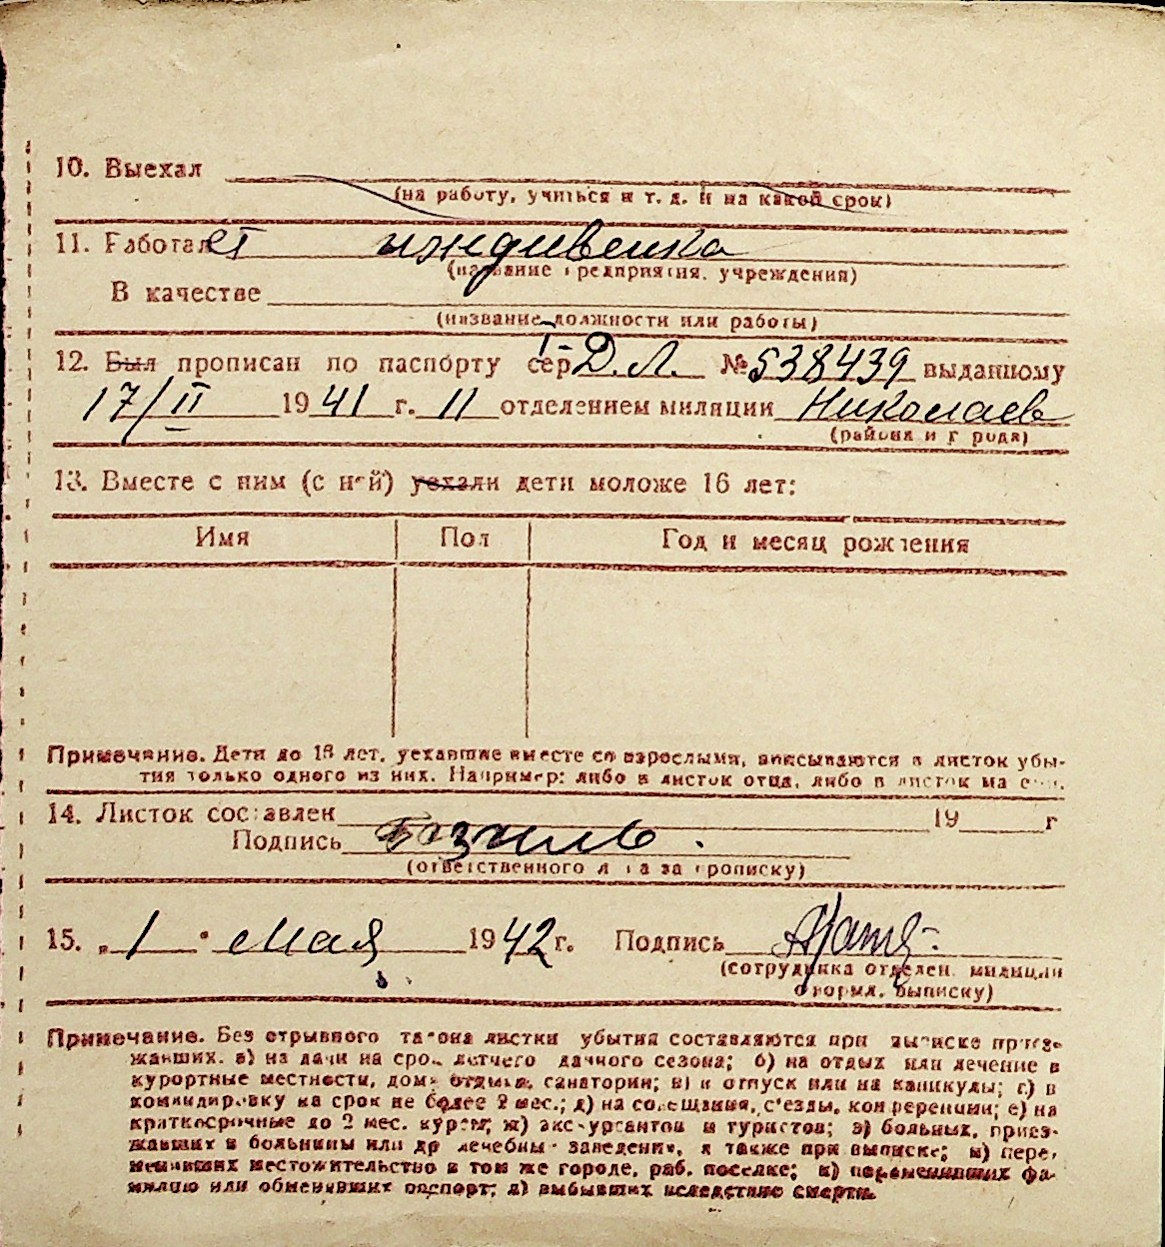 10. Выехал
(на работу, учиться и т. д. и на какой срок)
11. Работает иждивенка
(название предприятия, учреждения)
В качестве
(название должности или работы)
12. Был прописан по паспорту сер. I-Д.Л. № 538439 выданному
17/II 1941 г. 11 отделением милиции Николаев
(района и города)
13. Вместе с ним (с ней) уехали дети моложе 16 лет:
Имя Пол Год и месяц рождения
Примечание. Дети до 16 лет, уехавшие вместе со взрослыми, вписываются в листок убы-
тия только одного из них. Например: либо в листок отца, либо в листок матери.
14. Листок составлен 19 г
Подпись
(ответственного лица за прописку)
15. „1" мая 1942 г. Подпись
(сотрудника отделен. милиции
оформл. выписку)
Примечание. Без отрывного талона листки убытия составляются при выписке приез-
жавших: а) на дачи на срок летнего дачного сезона; б) на отдых или лечение в
курортные местности, дома отдыха, санатории; в) в отпуск или на каникулы; г) в
командировку на срок не более 2 мес.; д) на совещания, с'езды, конференции; е) на
краткосрочные до 2 мес. курсы; ж) экскурсантов и туристов; з) больных, приез-
жавших в больницы или др лечебные заведения, а также при выписке; и) пере-
менивших местожительство в том же городе, раб. поселке; к) переменивших фа-
милию или обменявших паспорт; л) выбывших вследствие смерти.